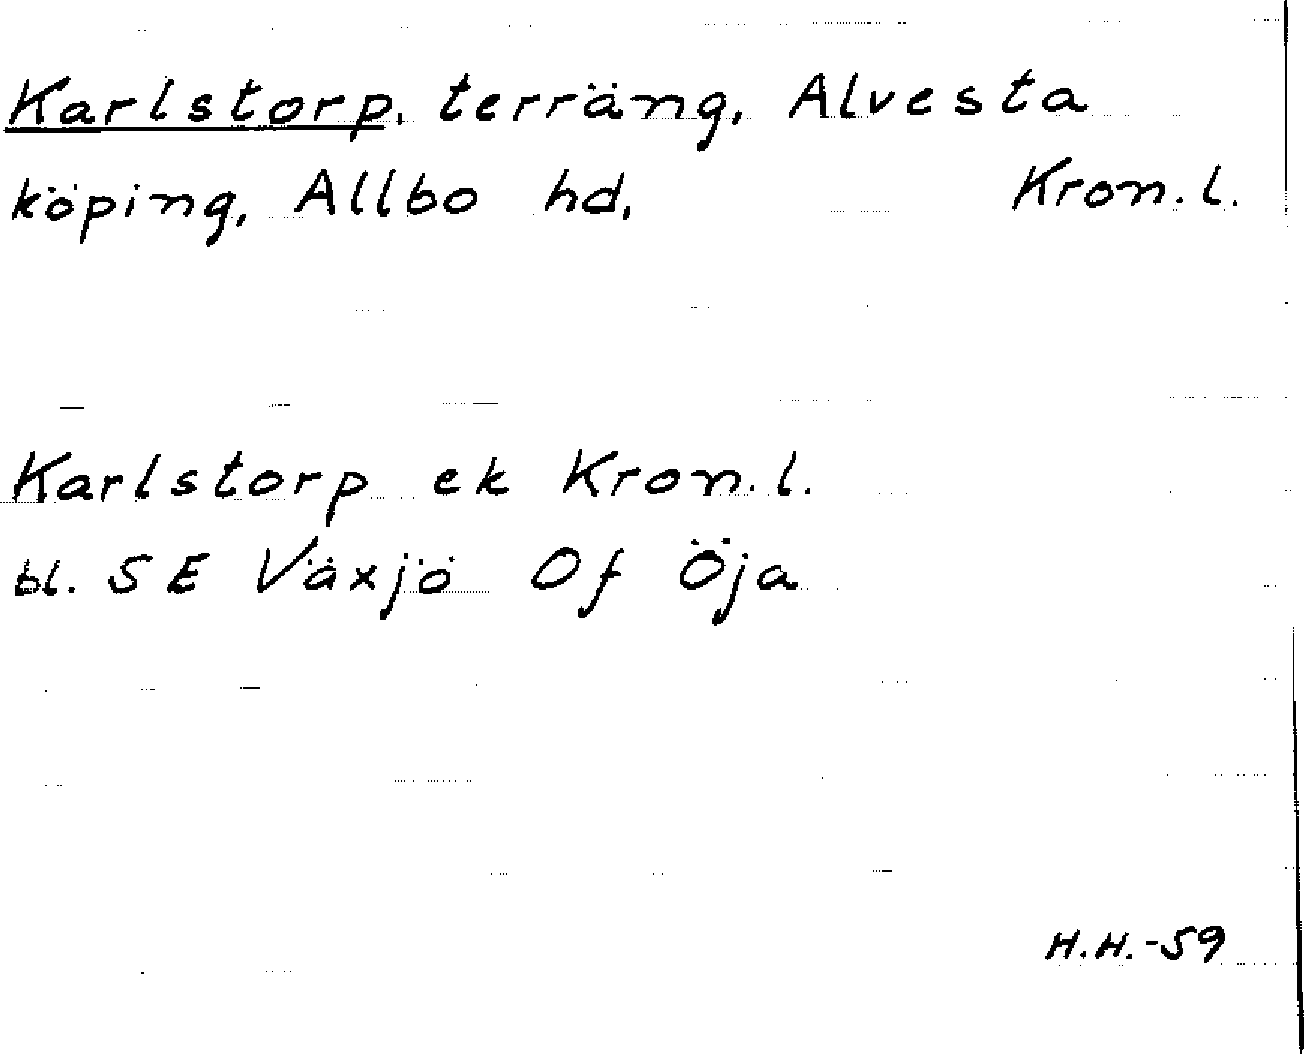 Karlstorp, terräng, Alvesta
köping, Allbo hd, Kron. l.
Karlstorp ek Kron. l.
bl. SE Växjö Of Öja
H.H.-59